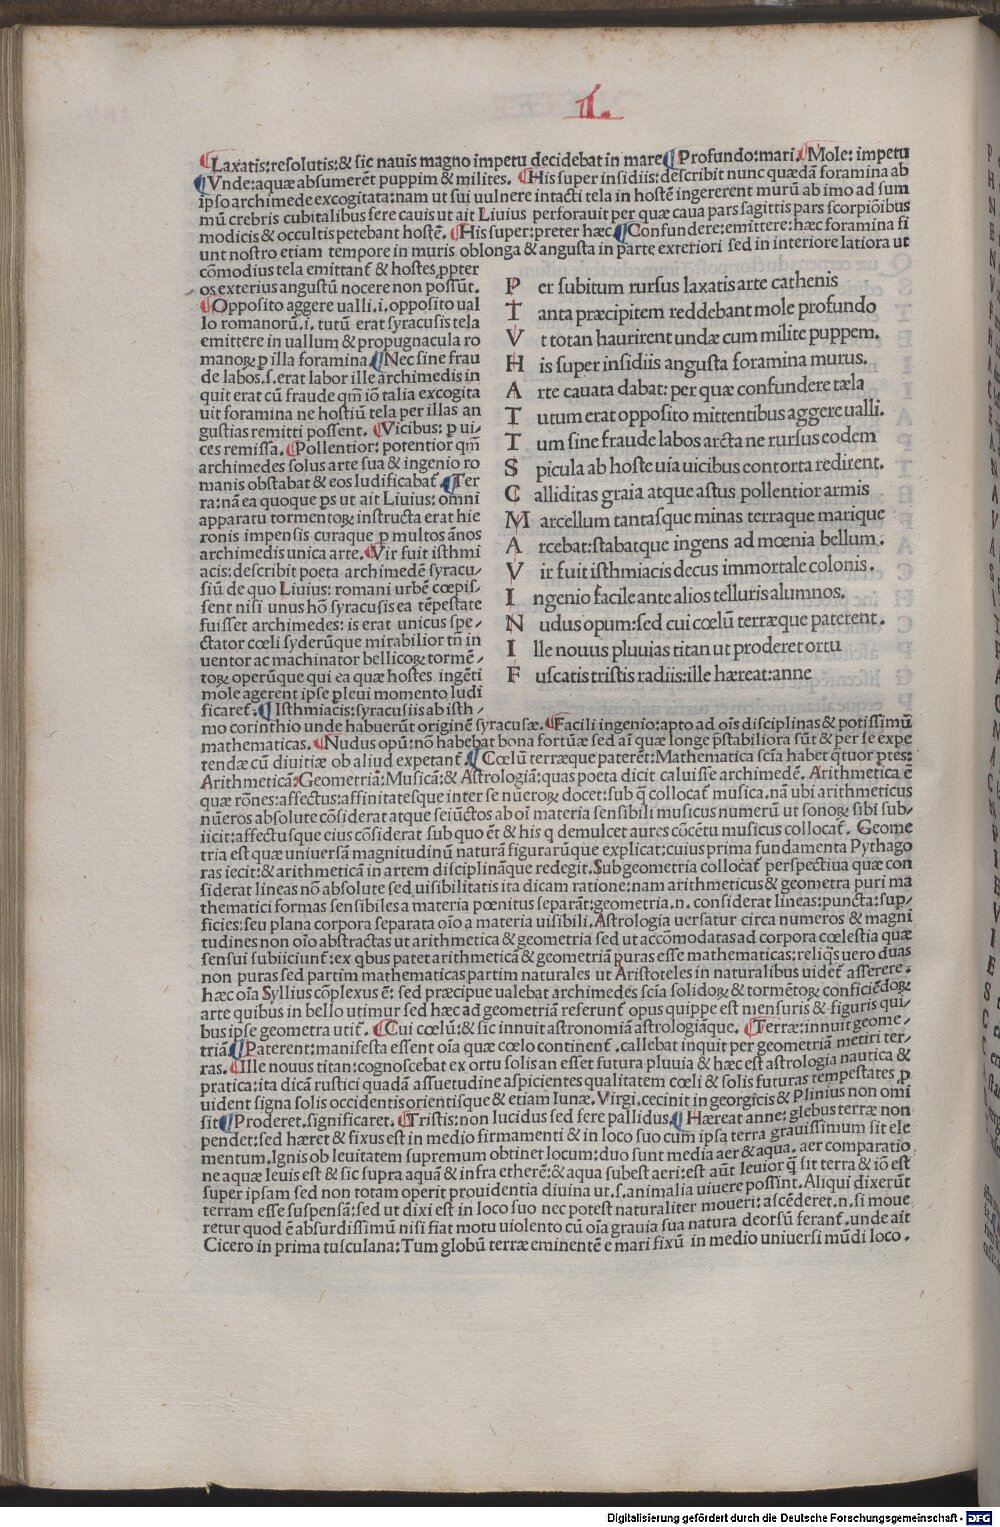 1.
Laxatis:resolutis:& sic nauis magno impetu decidebat in mare Profundo:mari. Mole: impetu
Vnde:aquæ absumerēt puppim & milites. His super insidiis:describit nunc quædā foramina ab
ipso archimede excogitata:nam ut sui uulnere intacti tela in hostē ingererent murū ab imo ad sum
mū crebris cubitalibus fere cauis ut ait Liuius perforauit per quæ caua pars sagittis pars scorpiōibus
modicis & occultis petebant hostē. His super:preter hæc Confundere:emittere:hæc foramina fi
unt nostro etiam tempore in muris oblonga & angusta in parte exteriori sed in interiore latiora ut
cōmodius tela emittant̄ & hostes ꝓpter
os exterius angustū nocere non possūt.
Opposito aggere ualli.i.opposito ual
lo romanorū.i. tutū erat syracusis tela
emittere in uallum & propugnacula ro
manoꝝ p illa foramina Nec sine frau
de labos.s.erat labor ille archimedis in
quit erat cū fraude qm̄ iō talia excogita
uit foramina ne hostiū tela per illas an
gustias remitti possent. Vicibus: p ui/
ces remissa. Pollentior: potentior qm̄
archimedes solus arte sua & ingenio ro
manis obstabat & eos ludificabat̄. Ter
ra:nā ea quoque ps ut ait Liuius: omni
apparatu tormentoꝝ instructa erat hie
ronis impensis curaque p multos ānos
archimedis unica arte. Vir fuit isthmi
acis:describit poeta archimedē syracu/
siū de quo Liuius: romani urbē cœpis/
sent nisi unus hō syracusis ea tēpestate
fuisset archimedes: is erat unicus spe/
ctator cœli syderūque mirabilior tn̄ in
uentor ac machinator bellicoꝝ tormē/
toꝝ operūque qui ea quæ hostes ingēti
mole agerent ipse pleui momento ludi
ficaret̄. Isthmiacis:syracusiis ab isth/
P er subitum rursus laxatis arte cathenis
T anta præcipitem reddebant mole profundo
V t totan haurirent undæ cum milite puppem.
H is super insidiis angusta foramina murus.
A rte cauata dabat: per quæ confundere tæla
T utum erat opposito mittentibus aggere ualli.
T um sine fraude labos arcta ne rursus eodem
S picula ab hoste uia uicibus contorta redirent.
C alliditas graia atque astus pollentior armis
M arcellum tantasque minas terraque marique
A rcebat:stabatque ingens ad mœnia bellum.
V ir fuit isthmiacis decus immortale colonis.
I ngenio facile ante alios telluris alumnos.
N udus opum:sed cui cœlū terræque paterent.
I lle nouus pluuias titan ut proderet ortu
F uscatis tristis radiis:ille hæreat:anne
mo corinthio unde habuerūt originē syracusæ. Facili ingenio:apto ad oīs disciplinas & potissimū
mathematicas. Nudus opū:nō habebat bona fortūæ sed aī quæ longe p̄stabiliora sūt & per se expe
tendæ cū diuitiæ ob aliud expetant̄ Cœlū terræque paterēt:Mathematica scīa habet q̄tuor ptes:
Arithmeticā:Geometriā:Musicā:& Astrologiā:quas poeta dicit caluisse archimedē. Arithmetica ē
quæ rōnes:affectus:affinitatesque inter se nūeroꝝ docet:sub q̄ collocat̄ musica.nā ubi arithmeticus
nūeros absolute cōsiderat atque seiūctos ab oī materia sensibili musicus numerū ut sonoꝝ sibi sub/
iicit:affectusque eius cōsiderat sub quo ēt & his q demulcet aures cōcētu musicus collocat̄. Geome
tria est quæ uniuersā magnitudinū naturā figurarūque explicat:cuius prima fundamenta Pythago
ras iecit:& arithmeticā in artem disciplināque redegit.Sub geometria collocat̄ perspectiua quæ con
siderat lineas nō absolute sed uisibilitatis ita dicam ratione:nam arithmeticus & geometra puri ma
thematici formas sensibiles a materia pœnitus separāt:geometria.n. considerat lineas:puncta:sup/
ficies:seu plana corpora separata oīo a materia uisibili. Astrologia uersatur circa numeros & magni
tudines non oīo abstractas ut arithmetica & geometria sed ut accōmodatas ad corpora cœlestia quæ
sensui subiiciunt̄:ex qbus patet arithmeticā & geometriā puras esse mathematicas:reliqs uero duas
non puras sed partim mathematicas partim naturales ut Aristoteles in naturalibus uidet̄ asserere:
hæc oīa Syllius cōplexus ē: sed præcipue ualebat archimedes scīa solidoꝝ & tormētoꝝ conficiēdoꝝ
arte quibus in bello utimur sed hæc ad geometriā referunt̄ opus quippe est mensuris & figuris qui/
bus ipse geometra utit̄. Cui cœlū:& sic innuit astronomiā astrologiāque. Terræ:innuit geome/
triā Paterent:manifesta essent oīa quæ cœlo continent̄.callebat inquit per geometriā metiri ter/
ras. Ille nouus titan:cognoscebat ex ortu solis an esset futura pluuia & hæc est astrologia nautica &
pratica:ita dicā rustici quadā assuetudine aspicientes qualitatem cœli & solis futuras tempestates ꝓ
uident signa solis occidentis orientisque & etiam lunæ. Virgi.cecinit in georgicis & Plinius non omi
sit Proderet.significaret. Tristis:non lucidus sed fere pallidus. Hæreat anne: glebus terræ non
pendet:sed hæret & fixus est in medio firmamenti & in loco suo cum ipsa terra grauissimum sit ele
mentum.Ignis ob leuitatem supremum obtinet locum:duo sunt media aer & aqua. aer comparatio
ne aquæ leuis est & sic supra aquā & infra etherē:& aqua subest aeri:est aūt leuior q̄ sit terra & iō est
super ipsam sed non totam operit prouidentia diuina ut.s.animalia uiuere possint.Aliqui dixerūt
terram esse suspensā:sed ut dixi est in loco suo nec potest naturaliter moueri:ascēderet.n.si moue
retur quod ē absurdissimū nisi fiat motu uiolento cū oīa grauia sua natura deorsū ferant̄.unde ait
Cicero in prima tusculana:Tum globū terræ eminentē e mari fixū in medio uniuersi mūdi loco.
Digitalisierung gefördert durch die Deutsche Forschungsgemeinschaft - DFG